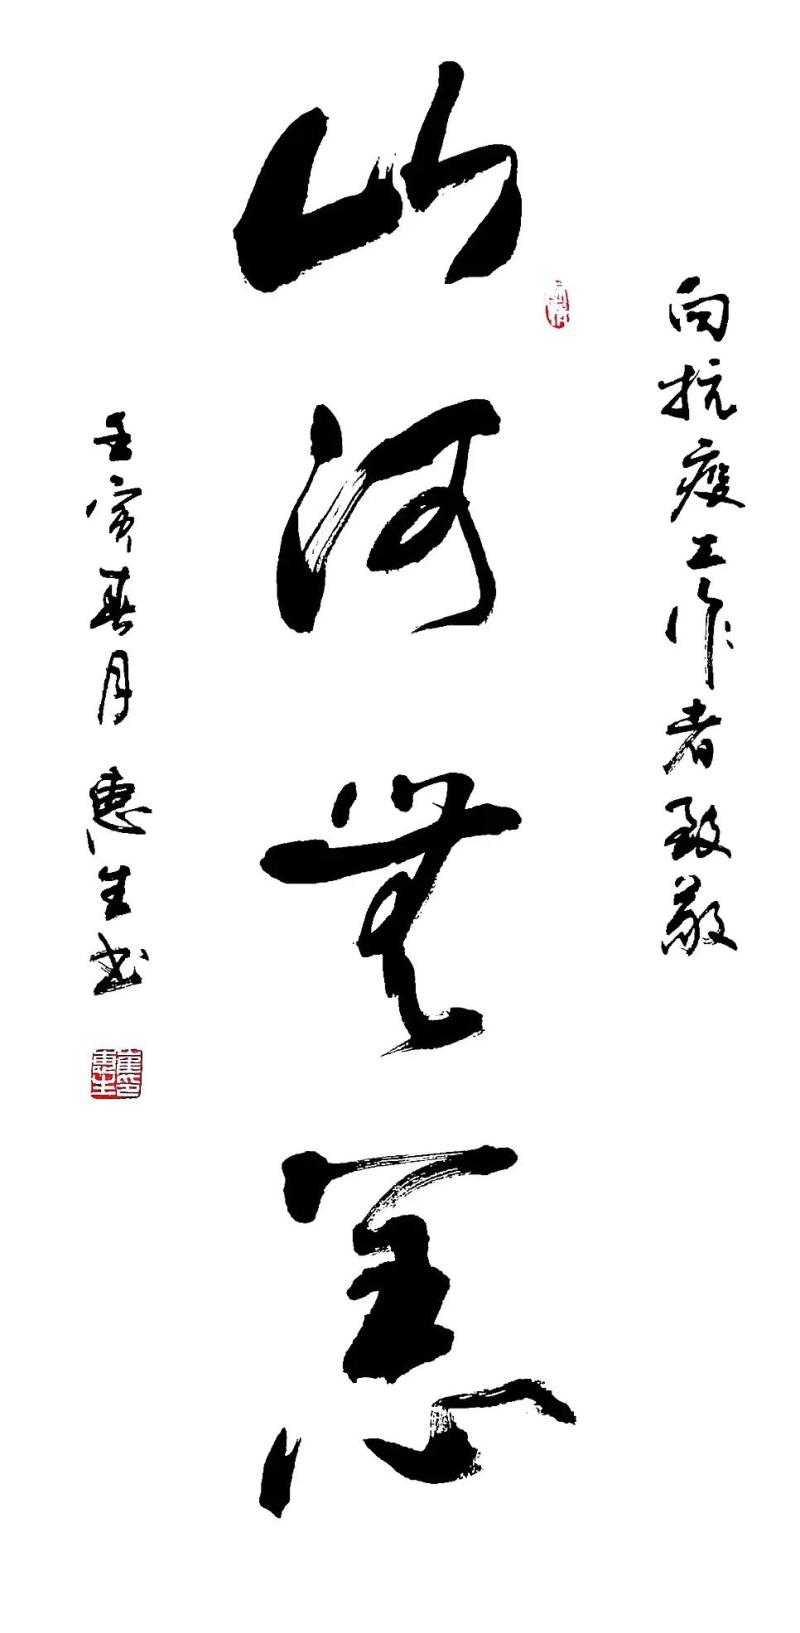 向抗疫工作者致敬
山河無恙
壬寅春月 惠生书
崔印惠生